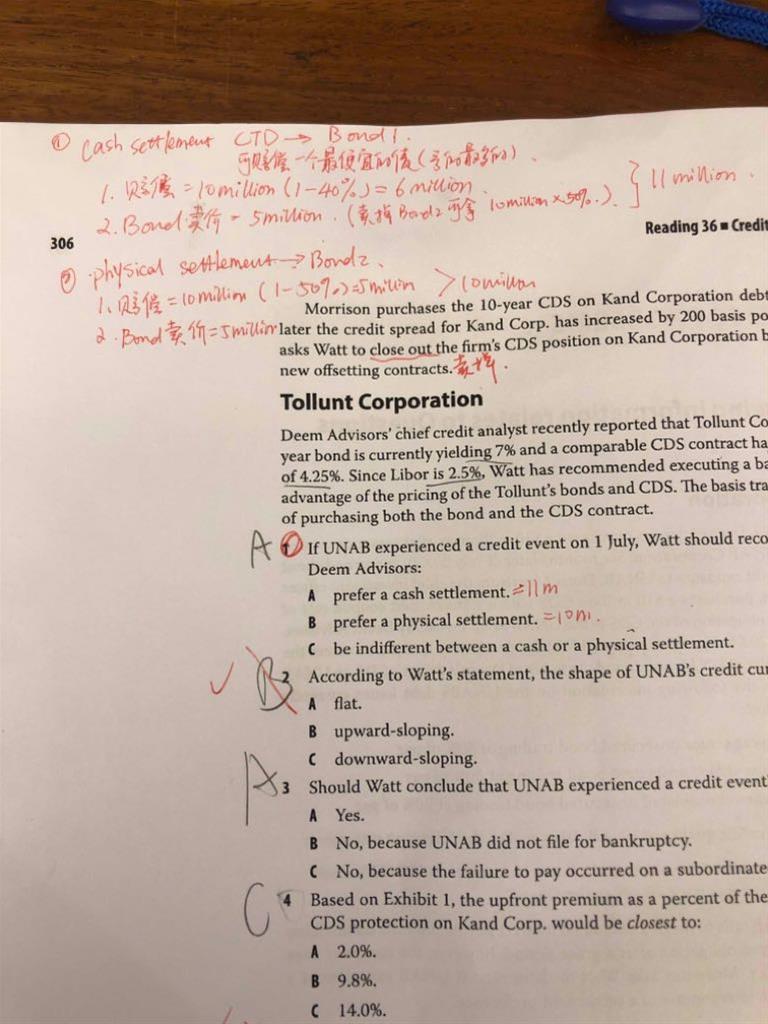 ① Cash settlement CTD → Bond 1.
可赔偿一个最便宜的债(亏的最多的).
1. 赔偿 = 10 million (1-40%) = 6 million.
2. Bond 卖价 = 5 million. (卖掉 Bond 2 可拿 10 million × 50%.) } 11 million.
306
Reading 36 ■ Credit
② physical settlement → Bond 2.
1. 赔偿 = 10 million (1-50%) = 5 million > 10 million
2. Bond 卖价 = 5 million
Morrison purchases the 10-year CDS on Kand Corporation debt
later the credit spread for Kand Corp. has increased by 200 basis po
asks Watt to close out the firm's CDS position on Kand Corporation b
new offsetting contracts. 卖掉.
Tollunt Corporation
Deem Advisors' chief credit analyst recently reported that Tollunt Co
year bond is currently yielding 7% and a comparable CDS contract ha
of 4.25%. Since Libor is 2.5%, Watt has recommended executing a ba
advantage of the pricing of the Tollunt's bonds and CDS. The basis tra
of purchasing both the bond and the CDS contract.
A 1 If UNAB experienced a credit event on 1 July, Watt should reco
Deem Advisors:
A prefer a cash settlement. = 11m
B prefer a physical settlement. = 10m.
C be indifferent between a cash or a physical settlement.
B 2 According to Watt's statement, the shape of UNAB's credit cu
A flat.
B upward-sloping.
C downward-sloping.
A 3 Should Watt conclude that UNAB experienced a credit event
A Yes.
B No, because UNAB did not file for bankruptcy.
C No, because the failure to pay occurred on a subordinate
C 4 Based on Exhibit 1, the upfront premium as a percent of the
CDS protection on Kand Corp. would be closest to:
A 2.0%.
B 9.8%.
C 14.0%.